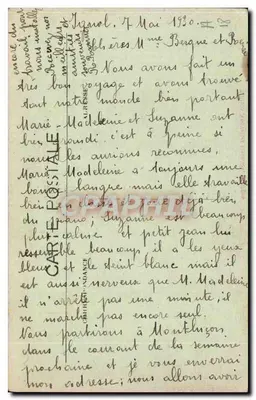 7 Mai 1930
Chères Mme Berque et
Nous avons fait un
très bon voyage et avons trouvé
tout notre monde bien portant
Marie-Madeleine et Suzanne ont
bien grandi c'est à peine si
les aurions reconnues.
Madeleine a toujours une
langue mais elle travaille
déjà très
du piano, Suzanne est beaucoup
plus calme et petit jean lui
ressemble beaucoup, il a les yeux
bleus et le teint blanc mais il
est aussi nerveux que M. Madeleine
il n'arrête pas une minute, il
ne marche pas encore seul.
Nous partirons à Montluçon
dans le courant de la semaine
prochaine et je vous enverrai
mon adresse; nous allons avoir
encore du
CARTE POSTALE
CPARAMA
CORRESPONDANCE
ADRESSE